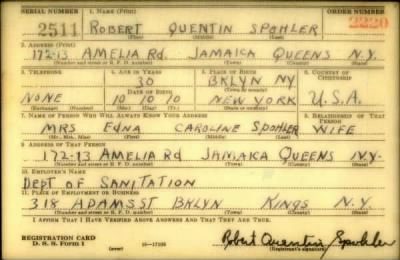 SERIAL NUMBER 1. NAME (Print) ORDER NUMBER
2511 ROBERT QUENTIN SPOHLER 2220
(First) (Middle) (Last)
2. ADDRESS (Print)
172-13 AMELIA Rd. JAMAICA QUEENS N.Y.
(Number and street or R. F. D. number) (Town) (County) (State)
3. TELEPHONE 4. AGE IN YEARS 5. PLACE OF BIRTH 6. COUNTRY OF CITIZENSHIP
30 BKLYN NY
DATE OF BIRTH (Town or county)
NONE 10 10 10 NEW YORK U.S.A.
(Exchange) (Number) (Mo.) (Day) (Yr.) (State or country)
7. NAME OF PERSON WHO WILL ALWAYS KNOW YOUR ADDRESS 8. RELATIONSHIP OF THAT PERSON
MRS EDNA CAROLINE SPOHLER WIFE
(Mr., Mrs., Miss) (First) (Middle) (Last)
9. ADDRESS OF THAT PERSON
172-13 AMELIA Rd JAMAICA QUEENS N.Y.
(Number and street or R. F. D. number) (Town) (County) (State)
10. EMPLOYER'S NAME
DEPT OF SANITATION
11. PLACE OF EMPLOYMENT OR BUSINESS
318 ADAMS ST BKLYN KINGS N.Y.
(Number and street or R. F. D. number) (Town) (County) (State)
I AFFIRM THAT I HAVE VERIFIED ABOVE ANSWERS AND THAT THEY ARE TRUE.
REGISTRATION CARD
D. S. S. Form 1 (over) Robert Quentin Spohler
(Registrant's signature)